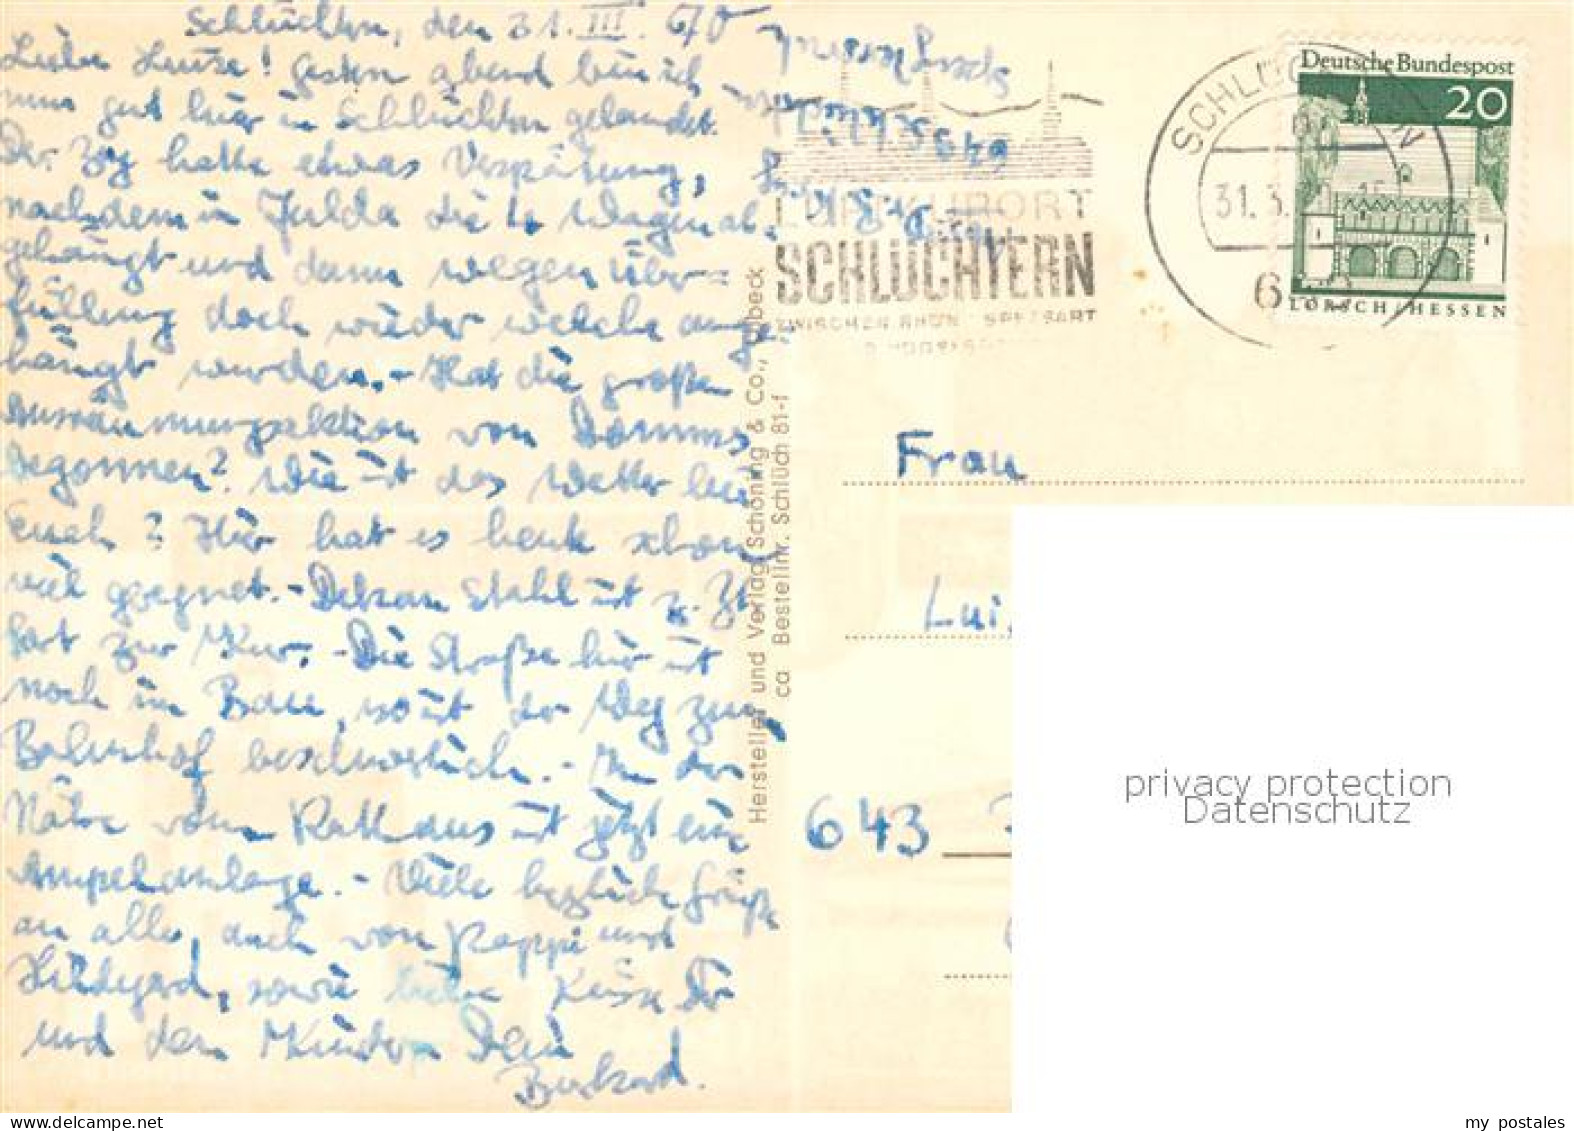 Schlüchtern, den 31. III. 670
Liebe Luise! Gestern abend bin ich
nun gut hier in Schlüchtern gelandet.
Der Zug hatte etwas Verspätung,
nachdem in Fulda die 4 Wagen ab-
gehängt und dann wegen Über=
füllung doch wieder welche ange
hängt wurden. - Hat die große
Ausräumungsaktion von
begonnen? Wie ist das Wetter bei
Euch? Hier hat es heute schon
viel geregnet. - Dekan Stahl ist z. Zt.
fort zur Kur. - Die Straße hier ist
noch im Bau, so ist der Weg zum
Bahnhof beschwerlich. - In der
Nähe vom Rathaus ist jetzt eine
Ampelanlage. - Viele herzliche Grüße
an alle, auch von Pappi und
Hildegard, sowie liebe Küsse Dir
und den Kindern Dein
Burkard.
649 Schlüchtern
Hersteller und Verlag Schöning & Co., Lübeck
ca Bestellnr. Schlüch 81-f
LUFTKURORT
SCHLÜCHTERN
ZWISCHEN RHÖN, SPESSART
SCHLÜCHTERN
31.3.
Deutsche Bundespost
20
LORSCH/HESSEN
Frau
Lui
643
privacy protection
Datenschutz
my postales